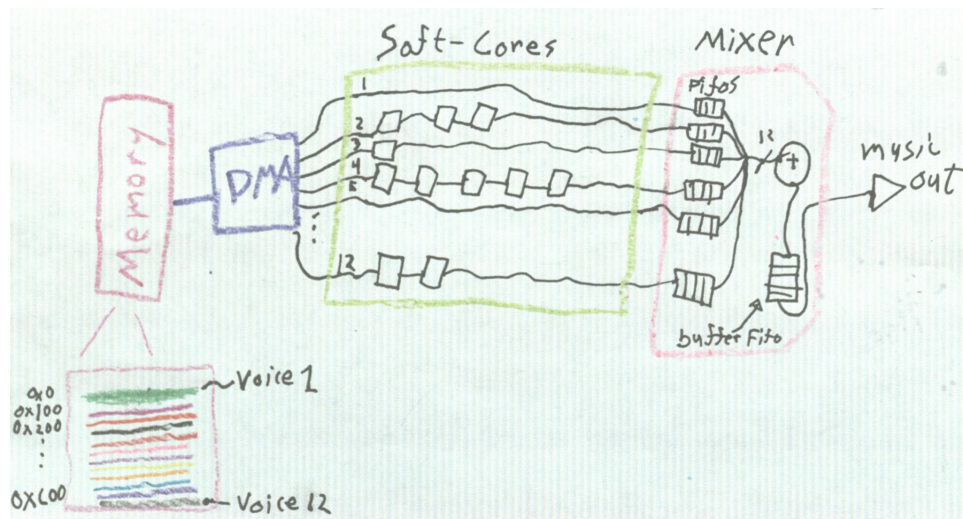 Soft-Cores
Mixer
Memory
DMA
1
2
3
4
5
12
Fifos
12
+
music
out
buffer Fifo
0x0
0x100
0x200
0xC00
Voice 1
Voice 12